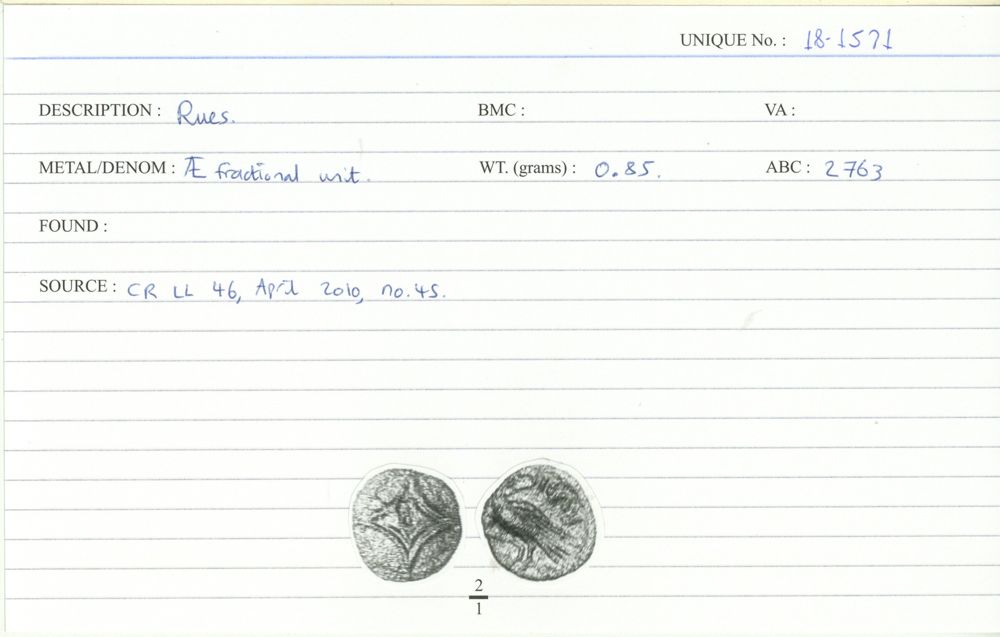 UNIQUE No. : 18-1571
DESCRIPTION : Rues. BMC : VA :
METAL/DENOM : Æ fractional unit. WT. (grams) : 0.85. ABC : 2763
FOUND :
SOURCE : CR LL 46, April 2010, no.45.
2
1